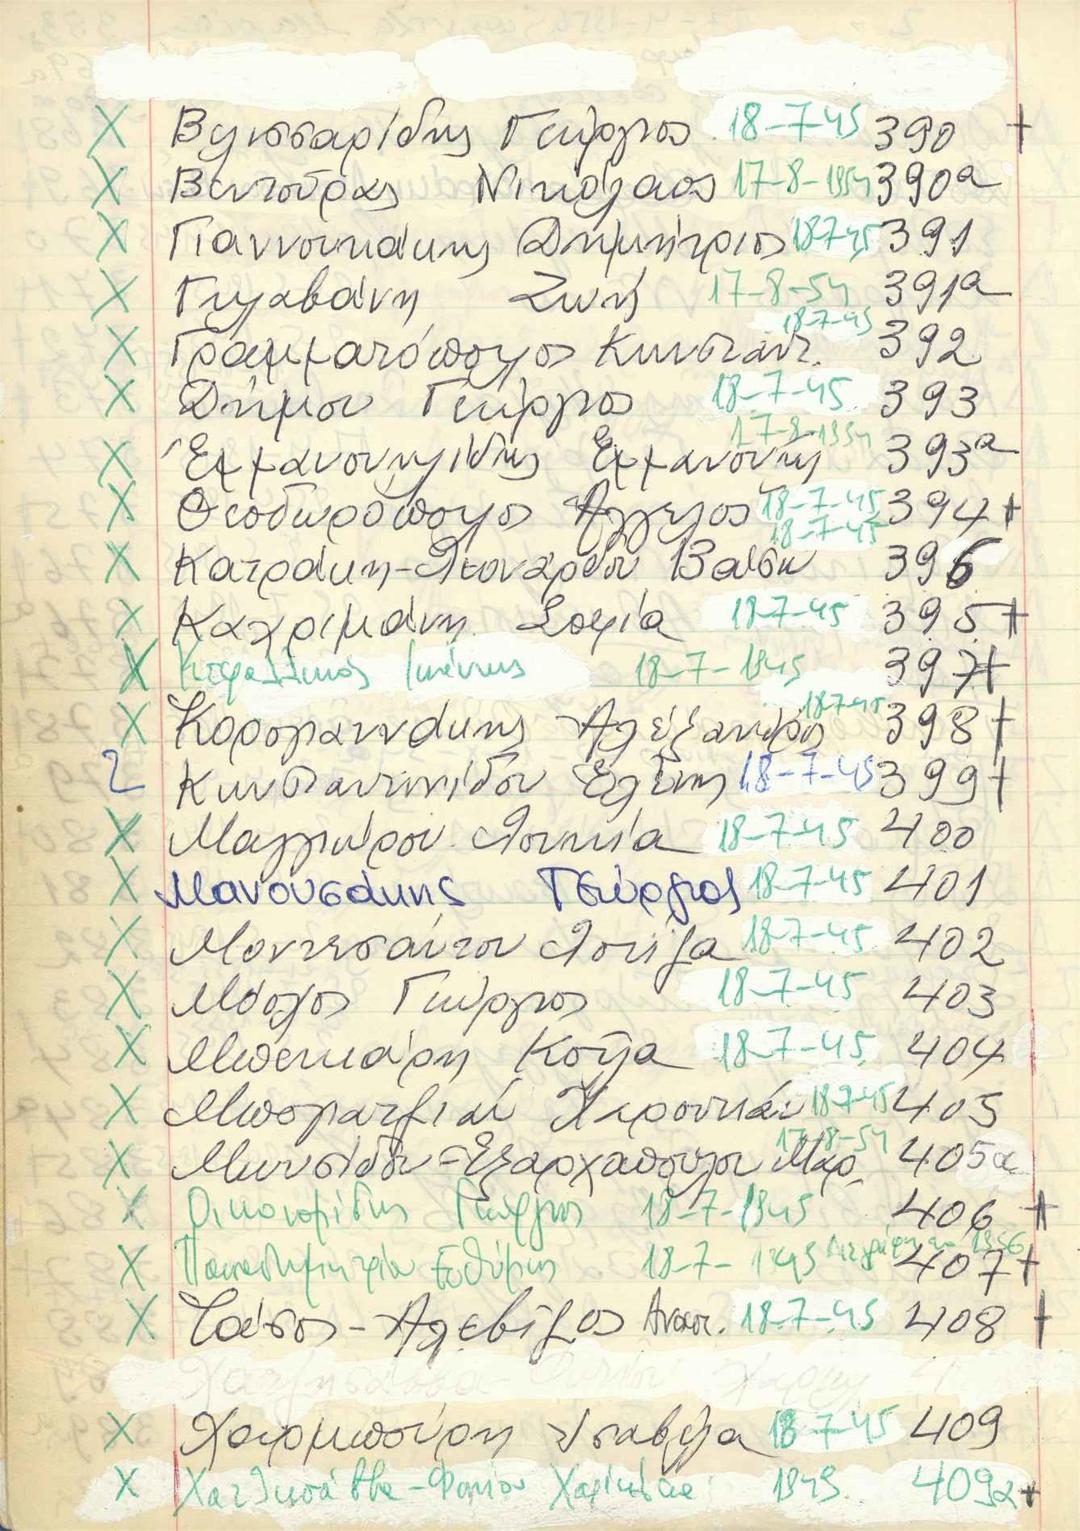 Χ Βελισσαρίδης Γεώργιος 18-7-45 390 +
Χ Βεντούρας Νικόλαος 17-8-1954 390α
Χ Γιαννουκάκης Δημήτριος 18-7-45 391
Χ Γκλαβάνη Ζωή 17-8-54 391α
Χ Γραμματόπουλος Κωνσταντ. 18-7-45 392
Χ Δήμου Γεώργιος 18-7-45 393
Χ Ἐμμανουηλίδης Ἐμμανουήλ 17-8-1954 393α
Χ Θεοδωρόπουλος Ἄγγελος 18-7-45 394 +
Χ Κατράκη-Λεονάρδου Βάσω 18-7-45 396
Χ Καχριμάνη Σοφία 18-7-45 395 +
Χ Κεφαλληνός Ιωάννης 18-7-1945 397 +
Χ Κορογιαννάκης Ἀλέξανδρος 18-7-45 398 +
2 Κωνσταντινίδου Ἑλένη 18-7-45 399 +
Χ Μαγγιώρου Λουκία 18-7-45 400
Χ Μανουσάκης Γεώργιος 18-7-45 401
Χ Μοντεσάντου Λουίζα 18-7-45 402
Χ Μόσχος Γεώργιος 18-7-45 403
Χ Μπεκιάρη Κούλα 18-7-45 404
Χ Μπογιατζιάν 18-7-45 405
Χ Μωυσίδου-Εξαρχοπούλου Μαρ. 17-8-54 405α
Χ Οικονομίδης Γεώργιος 18-7-1945 406 +
Χ Παπαδημητρίου Ευθύμης 18-7-1945 1956 407 +
Χ Τάσσος-Ἀλεβίζος Αναστ. 18-7-45 408 +
Χ Χαρμπούρη Ισαβέλα 18-7-45 409
Χ Χατζησάββα-Φωτίου Χαρίκλεια 1949 409α +